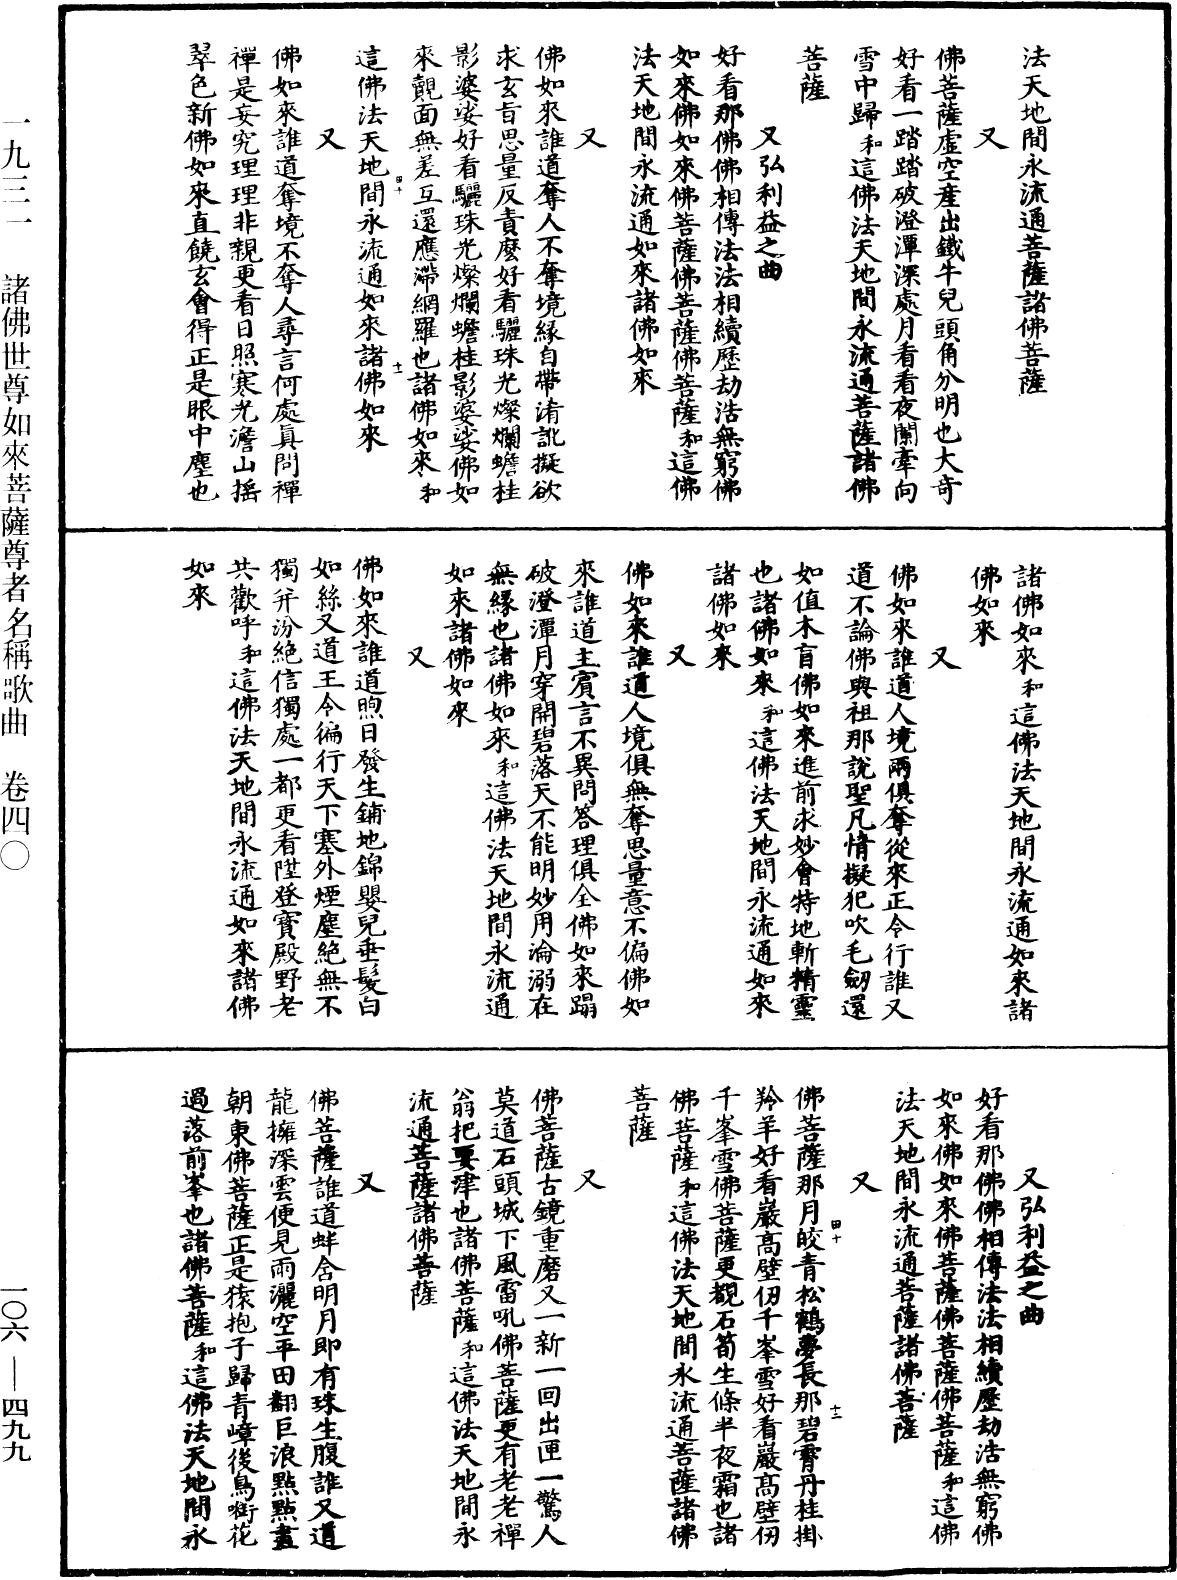 一九三一　諸佛世尊如來菩薩尊者名稱歌曲　卷四〇
一〇六—四九九
法天地間永流通菩薩諸佛菩薩
又
佛菩薩虛空産出鐵牛兒頭角分明也大奇
好看一踏踏破澄潭深處月看看夜闌牽向
雪中歸和這佛法天地間永流通菩薩諸佛
菩薩
又弘利益之曲
好看那佛佛相傳法法相續歷劫浩無窮佛
如來佛如來佛菩薩佛菩薩佛菩薩和這佛
法天地間永流通如來諸佛如來
又
佛如來誰道奪人不奪境緣自帶淆訛擬欲
求玄旨思量反責麼好看驪珠光燦爛蟾桂
影婆娑好看驪珠光燦爛蟾桂影婆娑佛如
來覿面無差互還應滯網羅也諸佛如來和
這佛法天地間永流通如來諸佛如來
田十
十一
又
佛如來誰道奪境不奪人尋言何處真問禪
禪是妄究理理非親更看日照寒光澹山搖
翠色新佛如來直饒玄會得正是眼中塵也
諸佛如來和這佛法天地間永流通如來諸
佛如來
又
佛如來誰道人境兩俱奪從來正令行誰又
道不論佛與祖那說聖凡情擬犯吹毛劒還
如值木盲佛如來進前求妙會特地斬精靈
也諸佛如來和這佛法天地間永流通如來
諸佛如來
又
佛如來誰道人境俱無奪思量意不偏佛如
來誰道主賓言不異問答理俱全佛如來蹋
破澄潭月穿開碧落天不能明妙用淪溺在
無緣也諸佛如來和這佛法天地間永流通
如來諸佛如來
又
佛如來誰道煦日發生鋪地錦嬰兒垂髮白
如絲又道王令徧行天下塞外煙塵絕無不
獨幷汾絕信獨處一都更看陞登寶殿野老
共歡呼和這佛法天地間永流通如來諸佛
如來
又弘利益之曲
好看那佛佛相傳法法相續歷劫浩無窮佛
如來佛如來佛菩薩佛菩薩佛菩薩和這佛
法天地間永流通菩薩諸佛菩薩
又
佛菩薩那月皎青松鶴夢長那碧霄丹桂掛
羚羊好看巖高壁仞千峯雪好看巖高壁仞
千峯雪佛菩薩更觀石筍生條半夜霜也諸
佛菩薩和這佛法天地間永流通菩薩諸佛
菩薩
田十
十二
又
佛菩薩古鏡重磨又一新一回出匣一驚人
莫道石頭城下風雷吼佛菩薩更有老老禪
翁把要津也諸佛菩薩和這佛法天地間永
流通菩薩諸佛菩薩
又
佛菩薩誰道蚌含明月即有珠生腹誰又道
龍擁深雲便見雨灑空平田翻巨浪點點盡
朝東佛菩薩正是猿抱子歸青嶂後鳥啣花
過落前峯也諸佛菩薩和這佛法天地間永